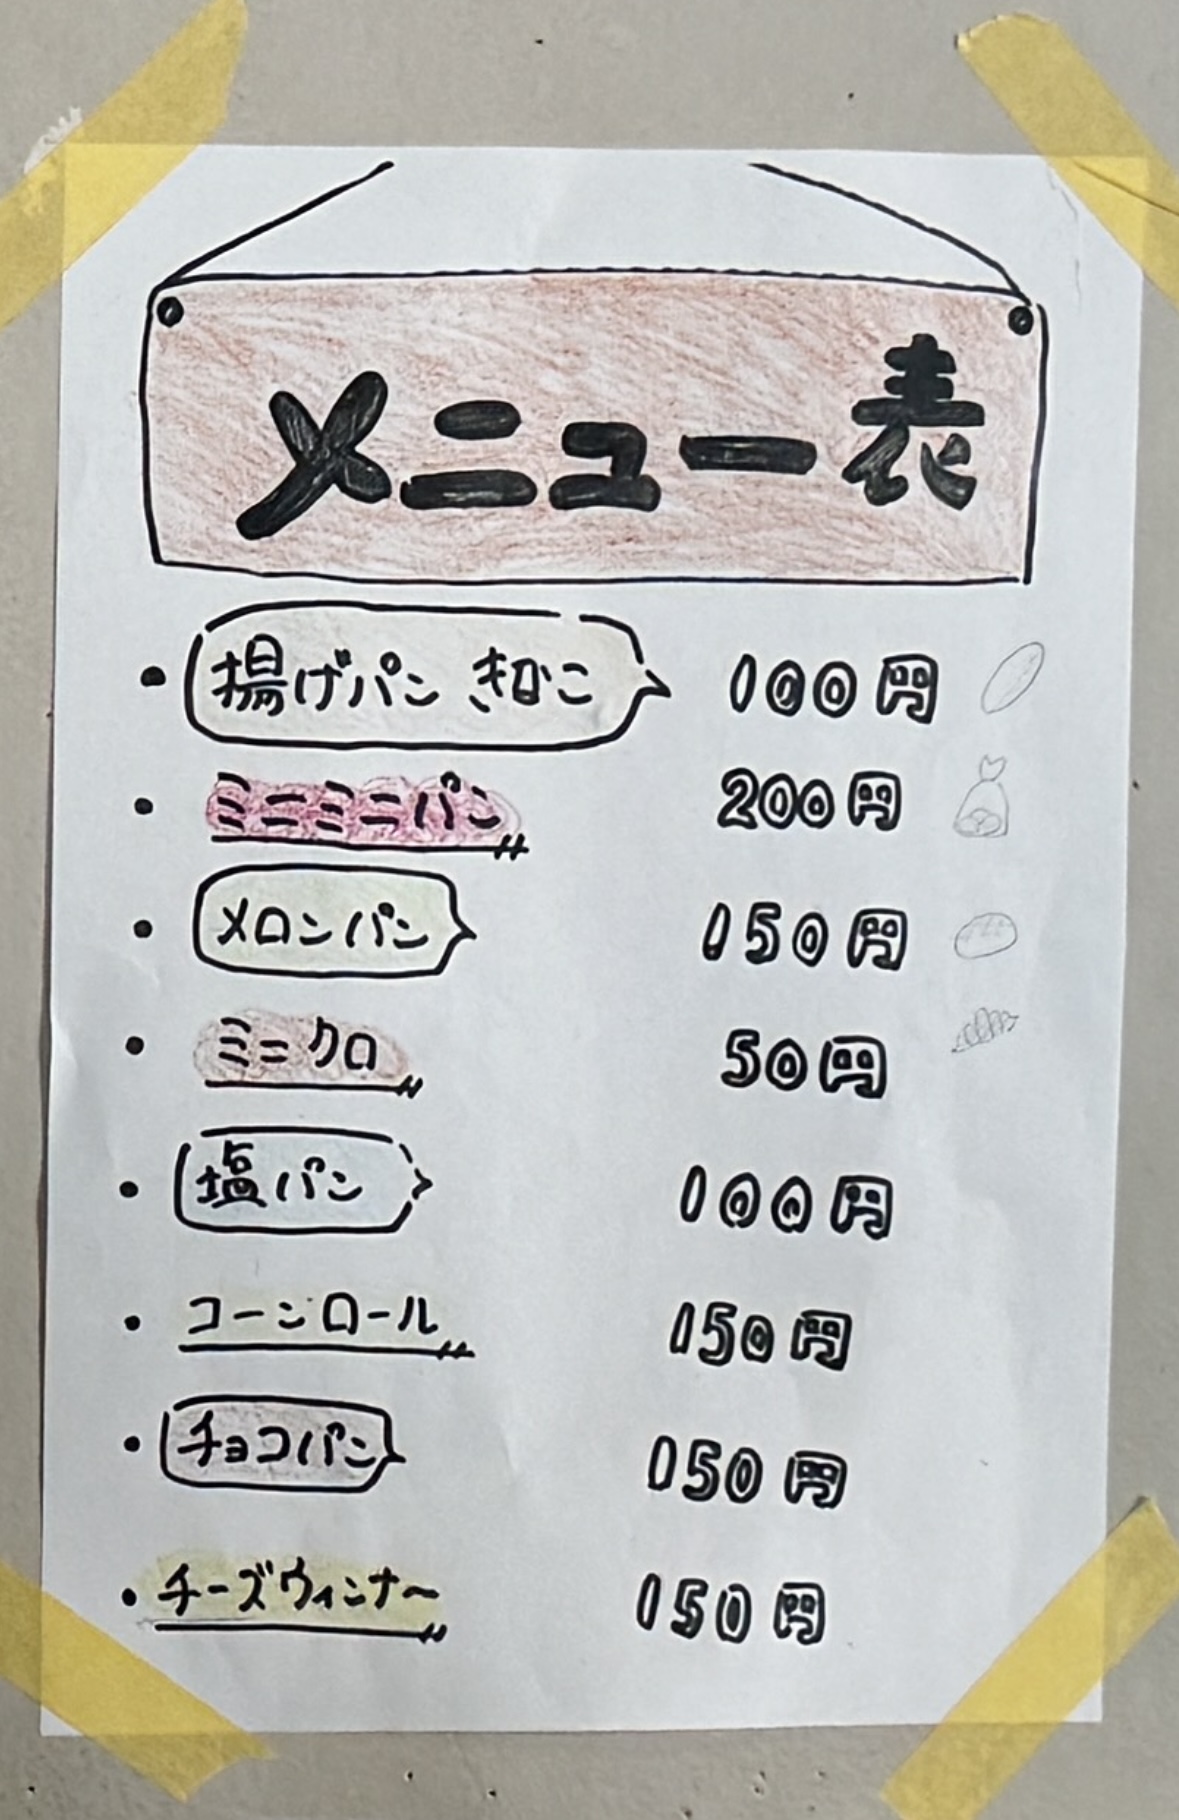 メニュー表
・揚げパン きなこ 100円
・ミニミニパン 200円
・メロンパン 150円
・ミニクロ 50円
・塩パン 100円
・コーンロール 150円
・チョコパン 150円
・チーズウィンナー 150円